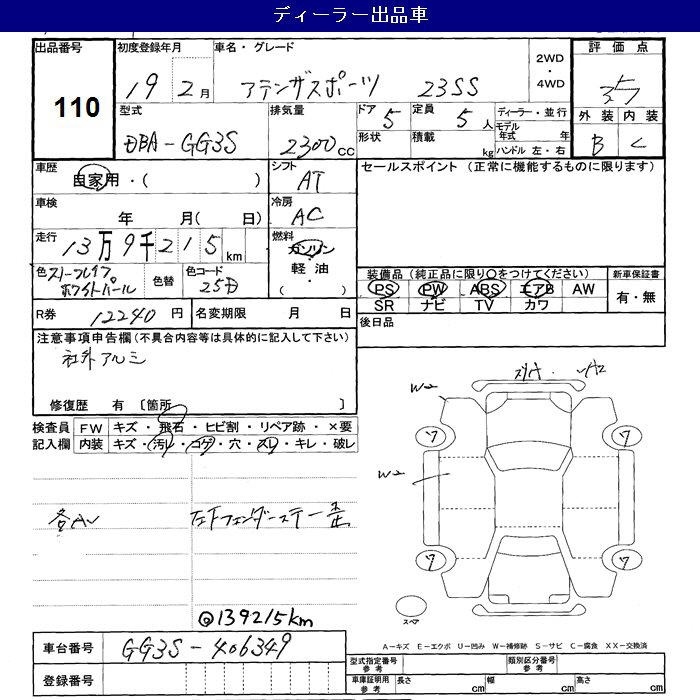 ディーラー出品車
出品番号 初度登録年月 車名・グレード 評価点
110 19年2月 アテンザスポーツ 23SS 2WD・4WD 3.5
型式 排気量 ドア 5 定員 5人 ディーラー・並行 外装 内装
DBA-GG3S 2300cc 形状 積載 kg モデル年式 年 ハンドル 左・右 B C
車歴 シフト セールスポイント（正常に機能するものに限ります）
自家用・（ ） AT
車検 冷房
年 月（ 日） AC
走行 燃料
13万9千215km ガソリン
軽油
色 ホワイトパール 色替 色コード 25D （ ）
装備品（純正品に限り○をつけてください） 新車保証書
PS PW ABS エアB AW 有・無
SR ナビ TV カワ
R券 12240円 名変期限 月 日 後日品
注意事項申告欄（不具合内容等は具体的に記入して下さい）
社外アルミ
修復歴 有 〔箇所 〕
検査員記入欄 FW キズ・飛石・ヒビ割・リペア跡・×要
内装 キズ・汚レ・コゲ・穴・スレ・キレ・破レ
W2
W2
7 7
7 7
各AU 左Fフェンダーステー歪
@139215km
スペア
A－キズ E－エクボ U－凹み W－補修跡 S－サビ C－腐食 XX－交換済
車台番号 GG3S-406349
登録番号
型式指定番号 参考 類別区分番号 参考
車庫証明用 参考 長さ cm 幅 cm 高さ cm